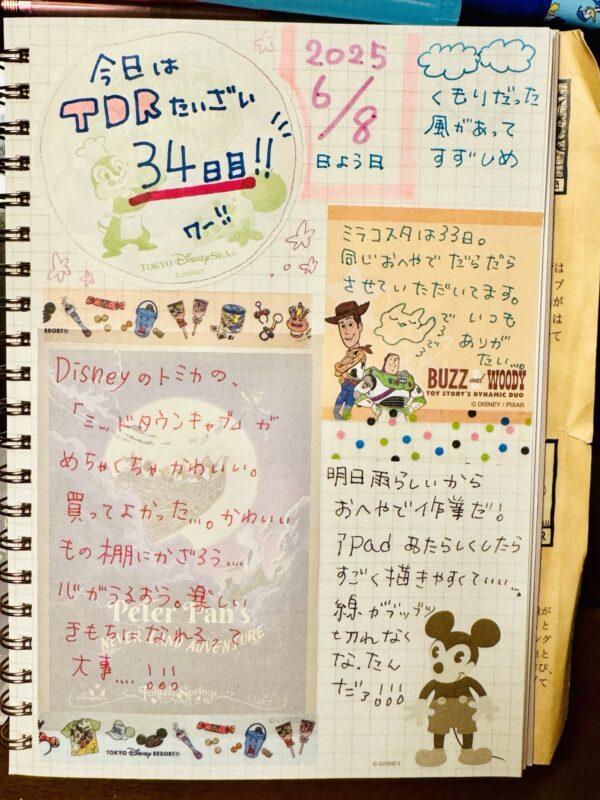 今日は
TDRたいざい
34日目!!
ワー!!
TOKYO DISNEYSEA®
© DISNEY
2025
6/8
日よう日
くもりだった
風があって
すずしめ
ミラコスタは33日。
同じおへやでだらだら
させていただいてます。
いつも
ありが
たい...。
BUZZ and WOODY
TOY STORY'S DYNAMIC DUO
© DISNEY / PIXAR
RESORT®
Disneyのトミカの、
「ミッドタウンキャブ」が
めちゃくちゃかわいい。
買ってよかった...。かわいい
もの棚にかざろう....
心がうるおう。楽しい
きもちになれるって
大事....!!!
Peter Pan's
NEVER LAND ADVENTURE
Fantasy Springs
TOKYO DISNEY RESORT®
明日雨らしいから
おへやで作業だ!
iPadあたらしくしたら
すごく描きやすくて.....。
線がブツブツ
切れなく
なったん
だァ!!!
© DISNEY